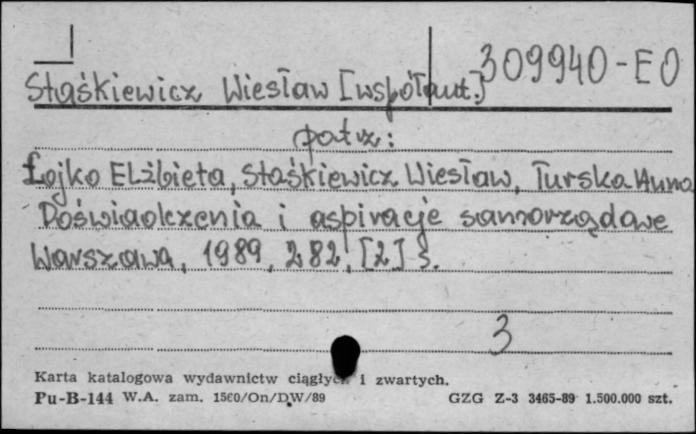 309940-EO
Staśkiewicz Wiesław [współaut.]
patrz:
Łojko Elżbieta, Staśkiewicz Wiesław, Turska Anna
Doświadczenia i aspiracje samorządowe
Warszawa, 1989, 282, [2] s.
3
Karta katalogowa wydawnictw ciągłych i zwartych.
Pu-B-144 W.A. zam. 1560/On/DW/89 GZG Z-3 3465-89 1.500.000 szt.